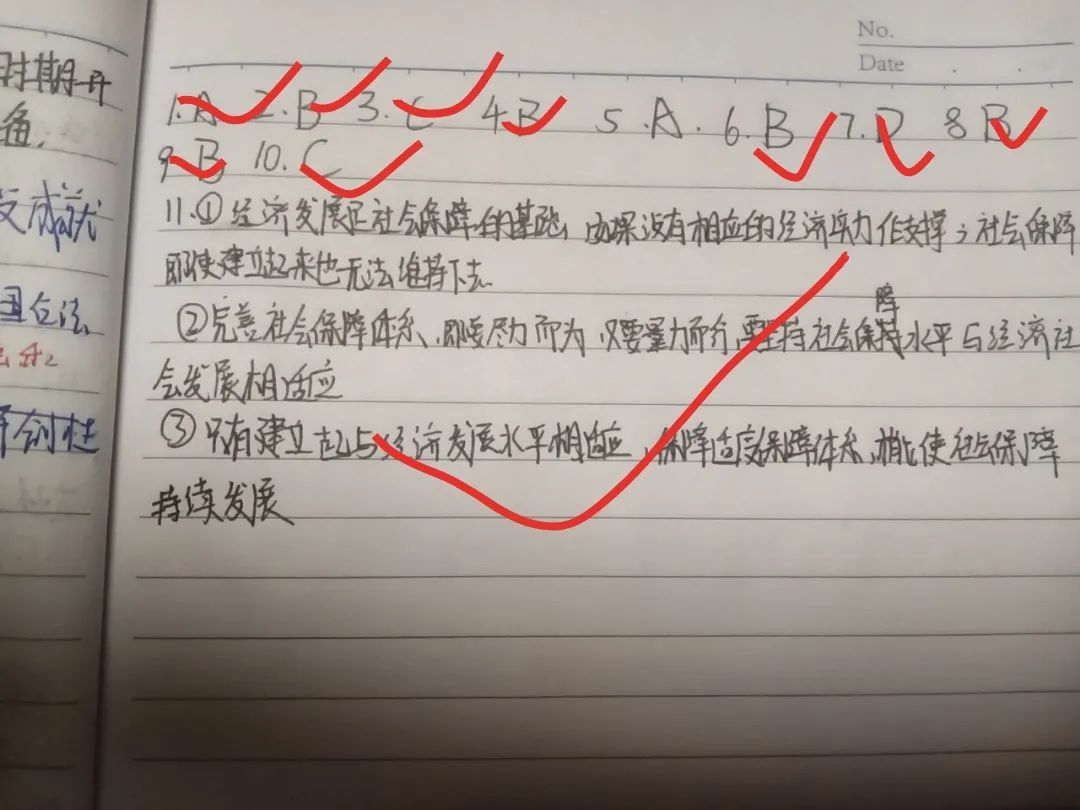 No.
Date
时期一斤
鱼.
成就
1.A 2.B 3.C 4.B 5.A. 6.B 7.D 8 B
9.B 10.C
11.①经济发展是社会保障的基础,如果没有相应的经济实力作支撑,社会保障
即使建立起来也无法维持下去
②完善社会保障体系,即要尽力而为,又要量力而行,要坚持社会保持水平与经济社
障
会发展相适应
③只有建立起与经济发展水平相适应,保障适度保障体系,才能使社会保障
持续发展